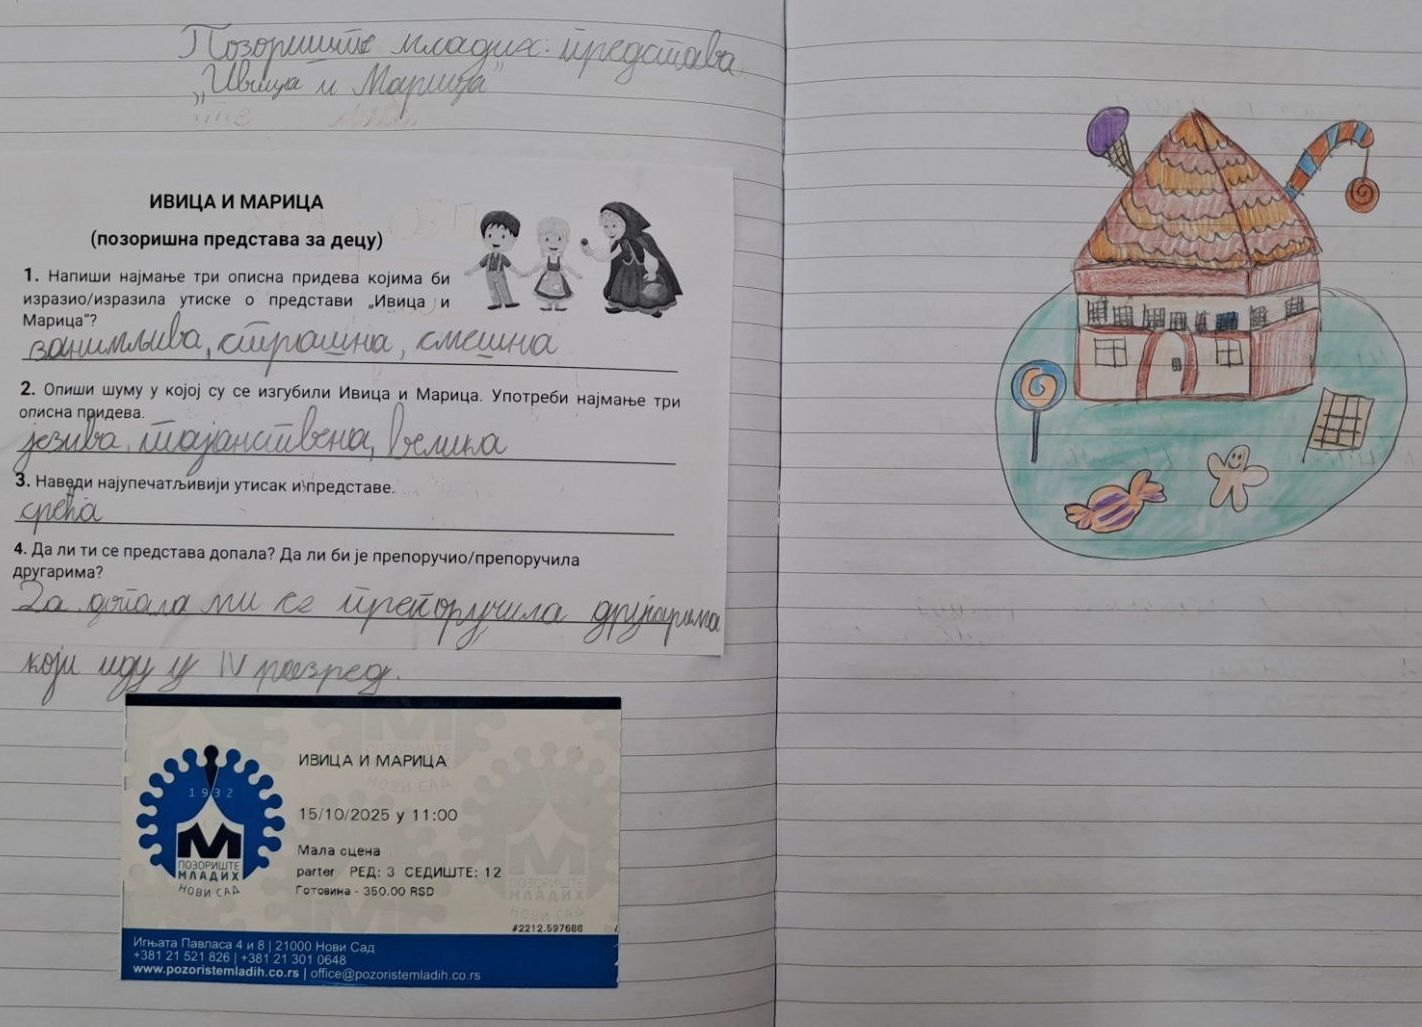 Позориште младих: представа
„Ивица и Марица”
ИВИЦА И МАРИЦА
(позоришна представа за децу)
1. Напиши најмање три описна придева којима би
изразио/изразила утиске о представи „Ивица и
Марица“?
занимљива, страшна, смешна
2. Опиши шуму у којој су се изгубили Ивица и Марица. Употреби најмање три
описна придева.
језива, тајанствена, велика
3. Наведи најупечатљивији утисак из представе.
срећа
4. Да ли ти се представа допала? Да ли би је препоручио/препоручила
другарима?
Да допала ми се препоручила другарима
који иду у IV разред.
1932
М
ПОЗОРИШТЕ
МЛАДИХ
НОВИ САД
ИВИЦА И МАРИЦА
15/10/2025 у 11:00
Мала сцена
parter РЕД: 3 СЕДИШТЕ: 12
Готовина - 350.00 RSD
#2212.597688
Игњата Павласа 4 и 8 | 21000 Нови Сад
+381 21 521 826 | +381 21 301 0648
www.pozoristemladih.co.rs | office@pozoristemladih.co.rs